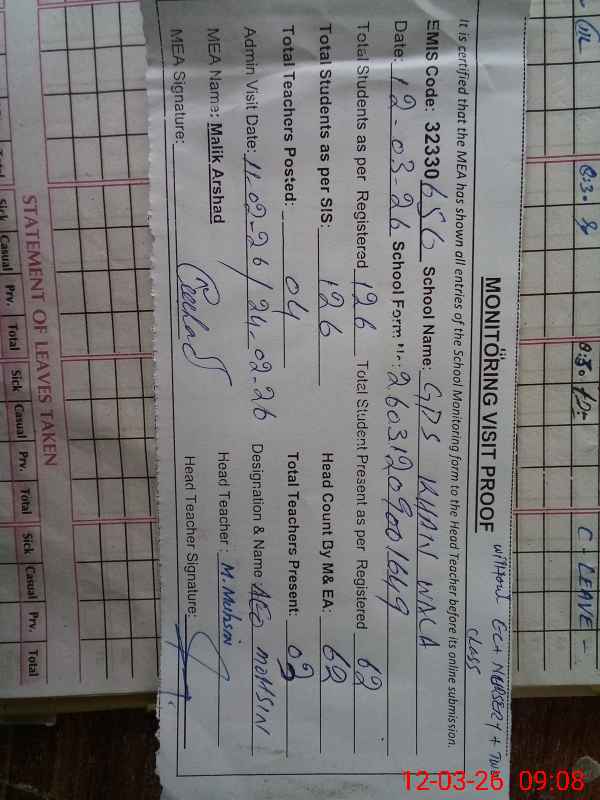 MONITORING VISIT PROOF without ECE NURSERY + TWO
class
It is certified that the MEA has shown all entries of the School Monitoring form to the Head Teacher before its online submission.
EMIS Code: 32330656 School Name: GPS KHAN WALA
Date: 12-03-26 School Form No: 26031209001649
Total Students as per Registered 126 Total Student Present as per Registered 62
Total Students as per SIS: 126 Head Count By M& EA: 62
Total Teachers Posted: 04 Total Teachers Present: 03
Admin Visit Date: 11-02-26 / 24-02-26 Designation & Name AEO MOHSIN
MEA Name: Malik Arshad Head Teacher: M. Mohsin
MEA Signature: Head Teacher Signature:
8:30
8:30
C - LEAVE -
STATEMENT OF LEAVES TAKEN
Total Sick Casual Prv. Total Sick Casual Prv. Total Sick Casual Prv. Total
12-03-26 09:08